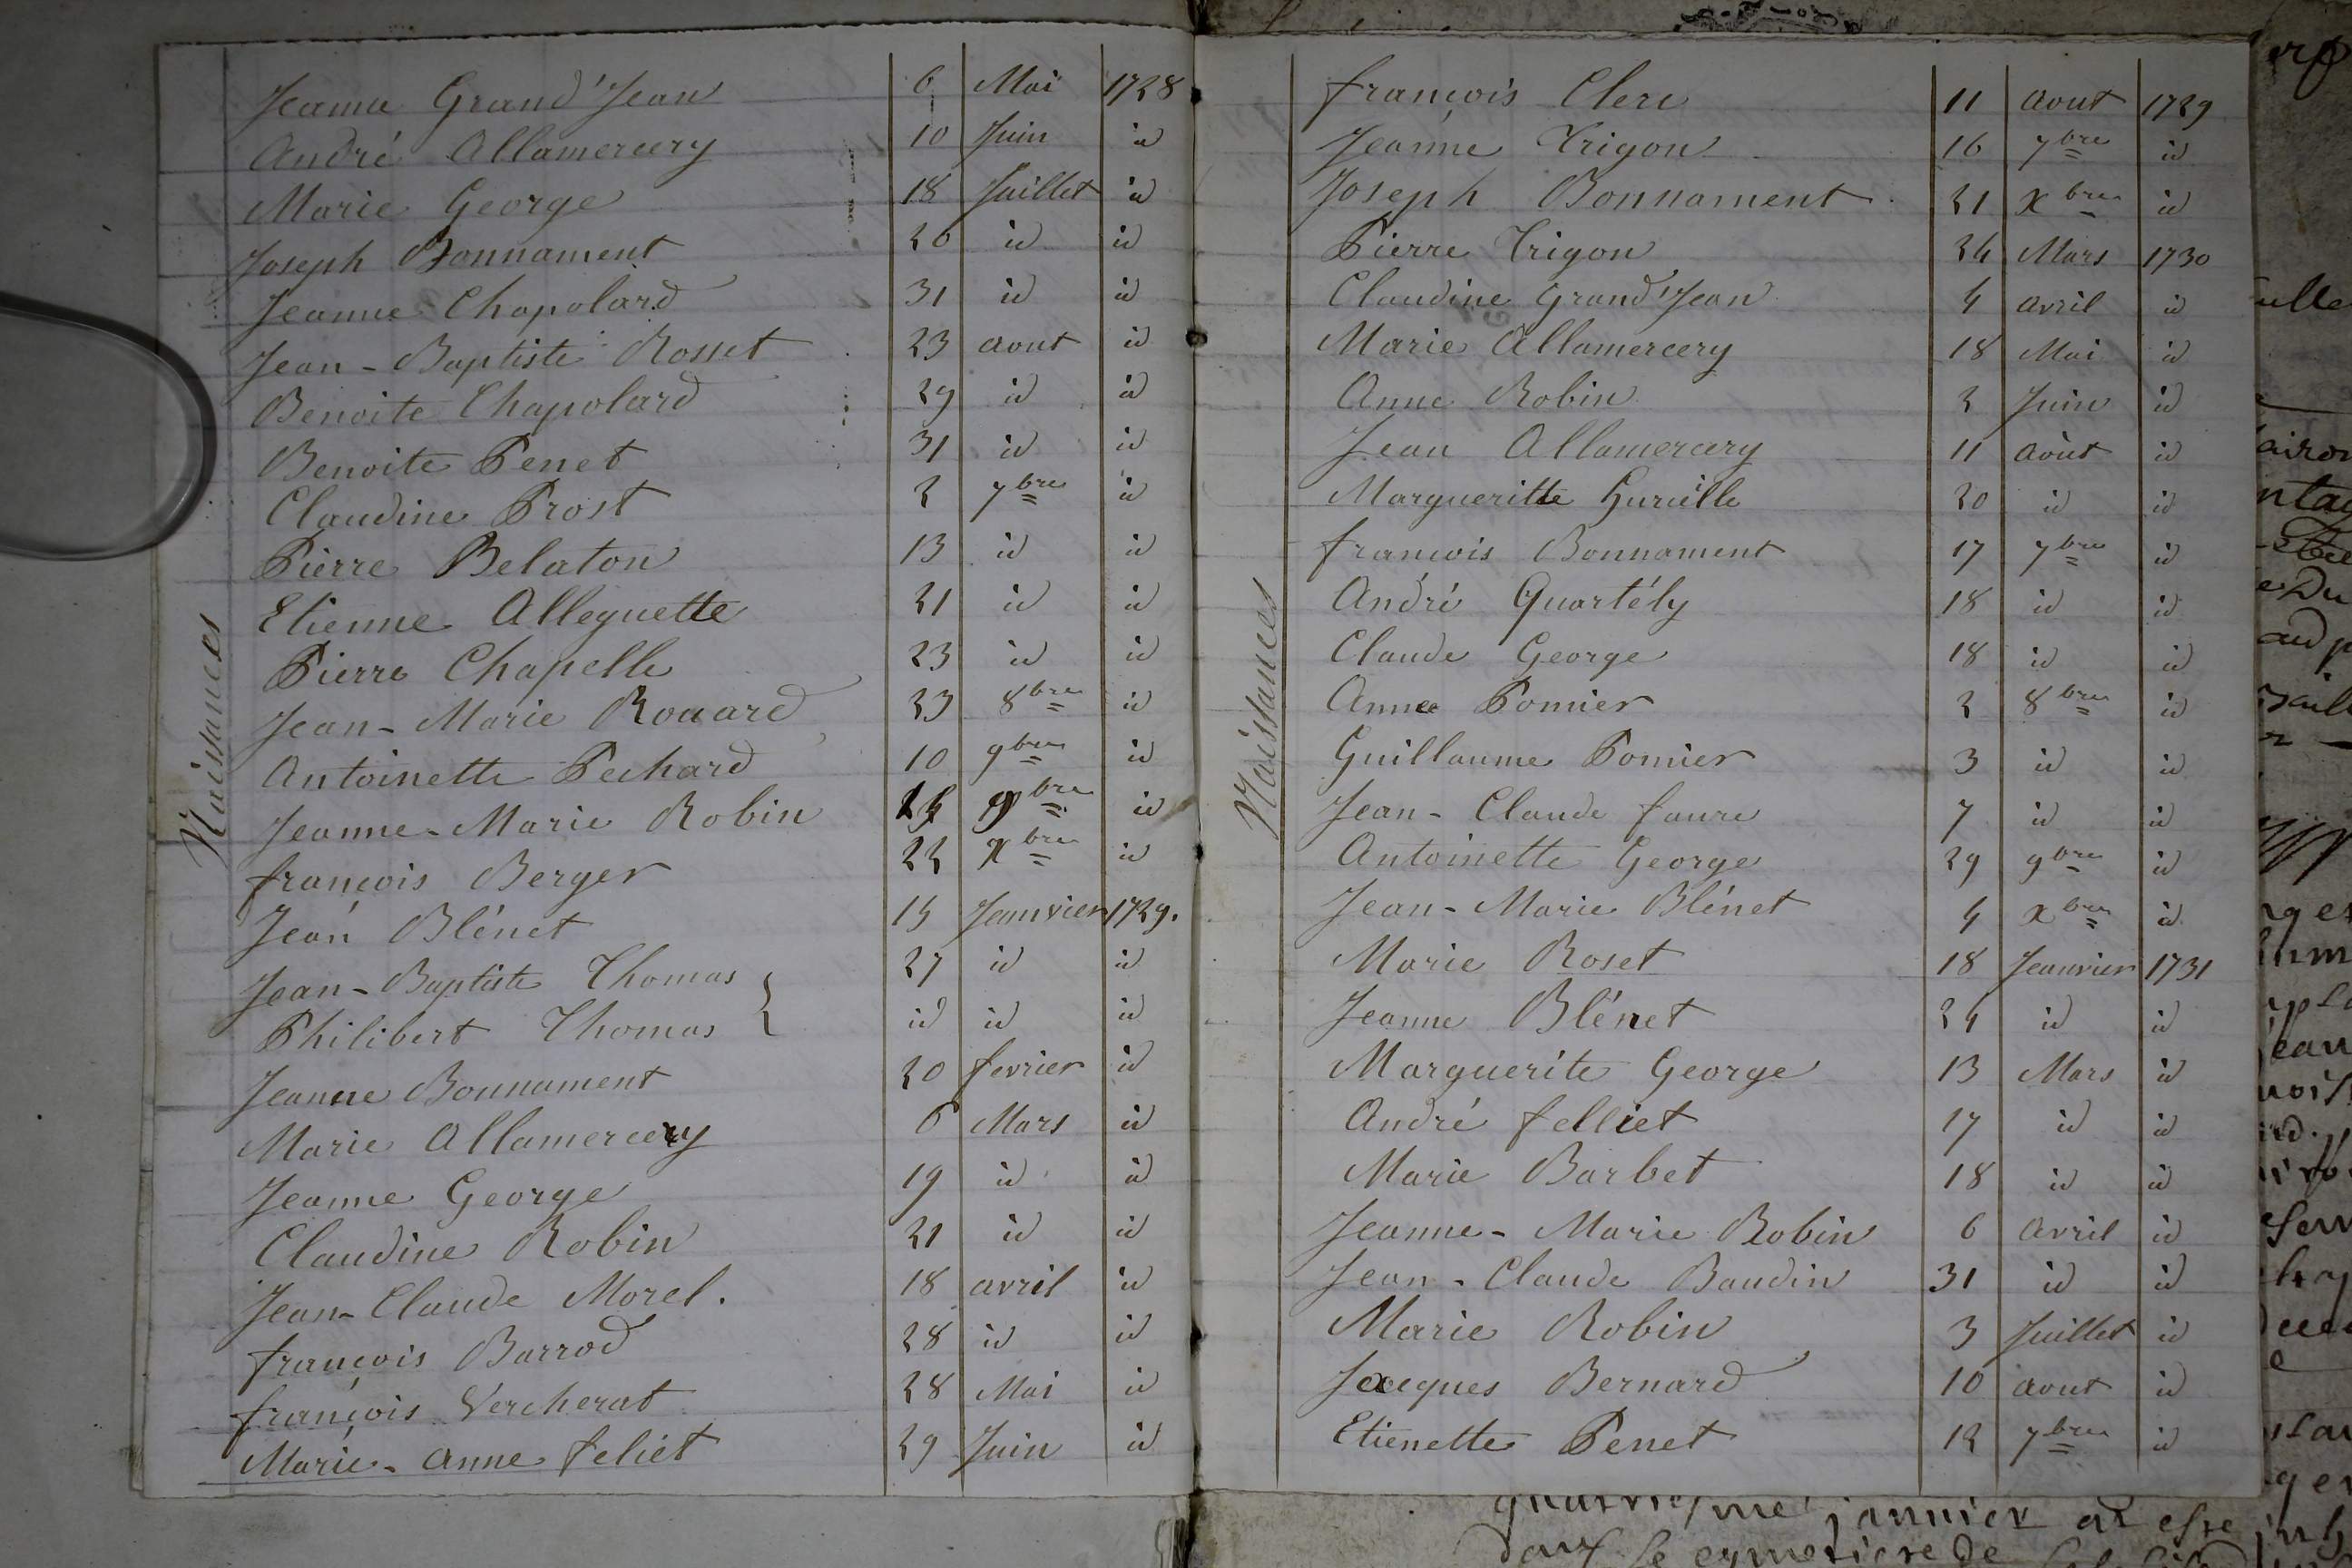 Naissances
Jeanne Grand'Jean 6 Mai 1728
André Allamercery 10 Juin id
Marie George 18 Juillet id
Joseph Bonnament 26 id id
Jeanne Chapolard 31 id id
Jean-Baptiste Rosset 23 aout id
Benoite Chapolard 29 id id
Benoite Penet 31 id id
Claudine Prost 2 7bre id
Pierre Belaton 13 id id
Etienne Alleguette 21 id id
Pierre Chapelle 23 id id
Jean-Marie Rouard 23 8bre id
Antoinette Pechard 10 9bre id
Jeanne-Marie Robin 9bre id
françois Berger 22 Xbre id
Jean Blénet 15 Jeanvier 1729.
Jean-Baptiste Thomas 27 id id
Philibert Thomas id id id
Jeanne Bonnament 20 fevrier id
Marie Allamercery 6 Mars id
Jeanne George 19 id id
Claudine Robin 21 id id
Jean-Claude Morel. 18 avril id
françois Barrod 28 id id
françois Vercherat 28 Mai id
Marie-anne feliet 29 Juin id
Naissances
françois Clerc 11 aout 1729
Jeanne Trigon 16 7bre id
Joseph Bonnament 21 Xbre id
Pierre Trigon 24 Mars 1730
Claudine Grand'Jean 4 avril id
Marie Allamercery 18 Mai id
Anne Robin 2 Juin id
Jean Allamercery 11 août id
Margueritte 20 id id
francois Bonnament 17 7bre id
André Quartély 18 id id
Claude George 18 id id
Anne Pomier 2 8bre id
Guillaume Pomier 3 id id
Jean-Claude faure 7 id id
Antoinette George 29 9bre id
Jean-Marie Blénet 4 Xbre id
Marie Roset 18 Jeanvier 1731
Jeanne Blénet 24 id id
Marguerite George 13 Mars id
André felliet 17 id id
Marie Barbet 18 id id
Jeanne-Marie Robin 6 avril id
Jean-Claude Baudin 31 id id
Marie Robin 3 Juillet id
Jacques Bernard 10 aout id
Etienette Penet 12 7bre id